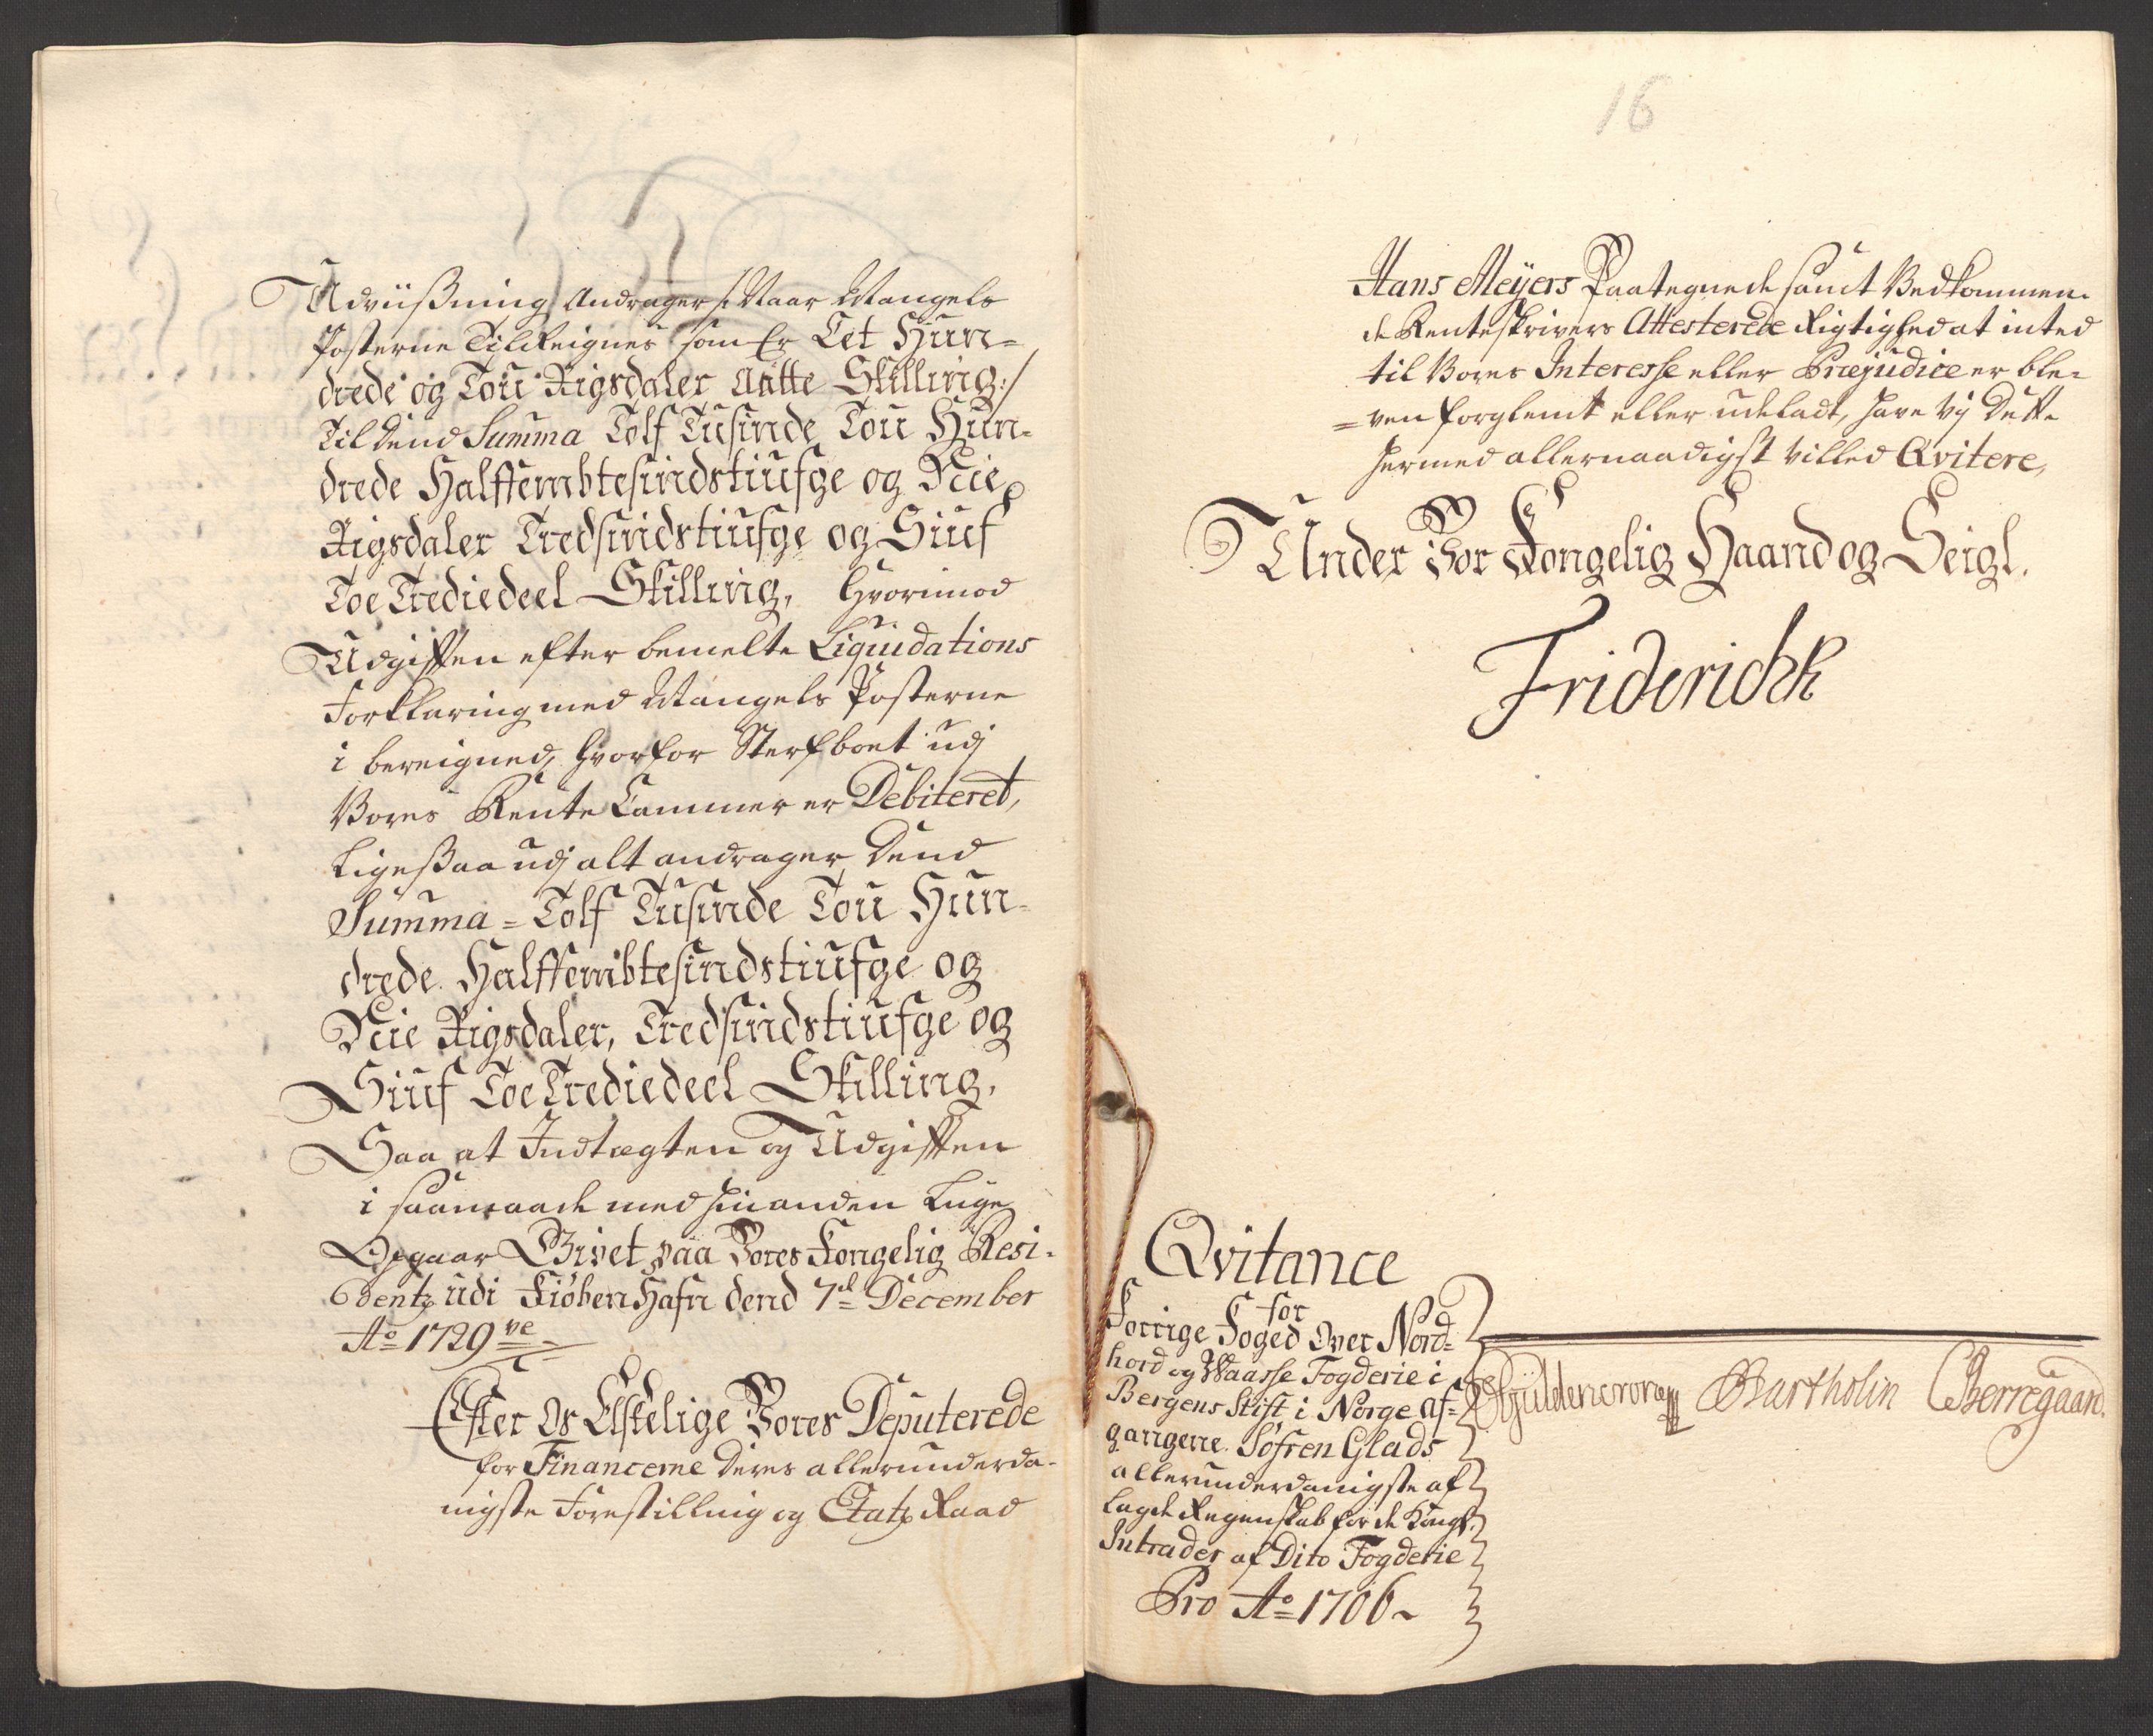 Udviisning Andrager /: Naar Mangels
Posterne Tillreignes som Er Eet Hun=
drede og Tou Rigsdaler Aatte Skilling :/
Til dend Summa Tolf Tusinde Tou Hun-
drede Halffembtesindstiufge og Nie
Rigsdaler Tredsindstiufge og Siuf
Toe Trediedeel Skilling, hvorimod
Udgifften efter bemelte Liquidations
Forklaring med Mangels Posterne
i bereigned, hvorfor Sterfboet udj
Vores Rente Cammer er Debiteret,
Ligesaa udj alt andrager dend
Summa = Tolf Tusinde Tou Hun-
drede Halffembtesindstiufge og
Nie Rigsdaler, Tredsindstiufge og
Siuf Toe Trediedeel Skilling,
Saa at Indtægten og Udgifften
i saamaade med hinanden Lige
Opgaar Givet paa Vores Kongelig Resi-
dentz udi Kiøbenhafn dend 7de December
Ao 1729ve
Efter Os Elskelige Vores Deputerede
for Financerne deres allerunderda-
nigste Forestilling og Etatz Raad
16
Hans Meÿers Paategnede samt Vedkommen-
de Renteskrivers Attesterede Rigtighed at inted
til Vores Interesse eller Præjudice er ble-
=ven forglemt eller udeladt, have Vij dette
hermed allernaadigst villed Qvitere,
Under Vor Kongelig Haand og Seigl.
Friderich R
Qvitance
for
Forrige Foged Over Nord=
hord og Waasse Fogderie i
Bergens Stift i Norge af=
gangene Søfren Glads
allerunderdanigste af
lagde Regenskab for de Kongl.
Intrader af Dito Fogderie
Pro Ao 1706
Gÿldencrone Bartholin Berregaard.